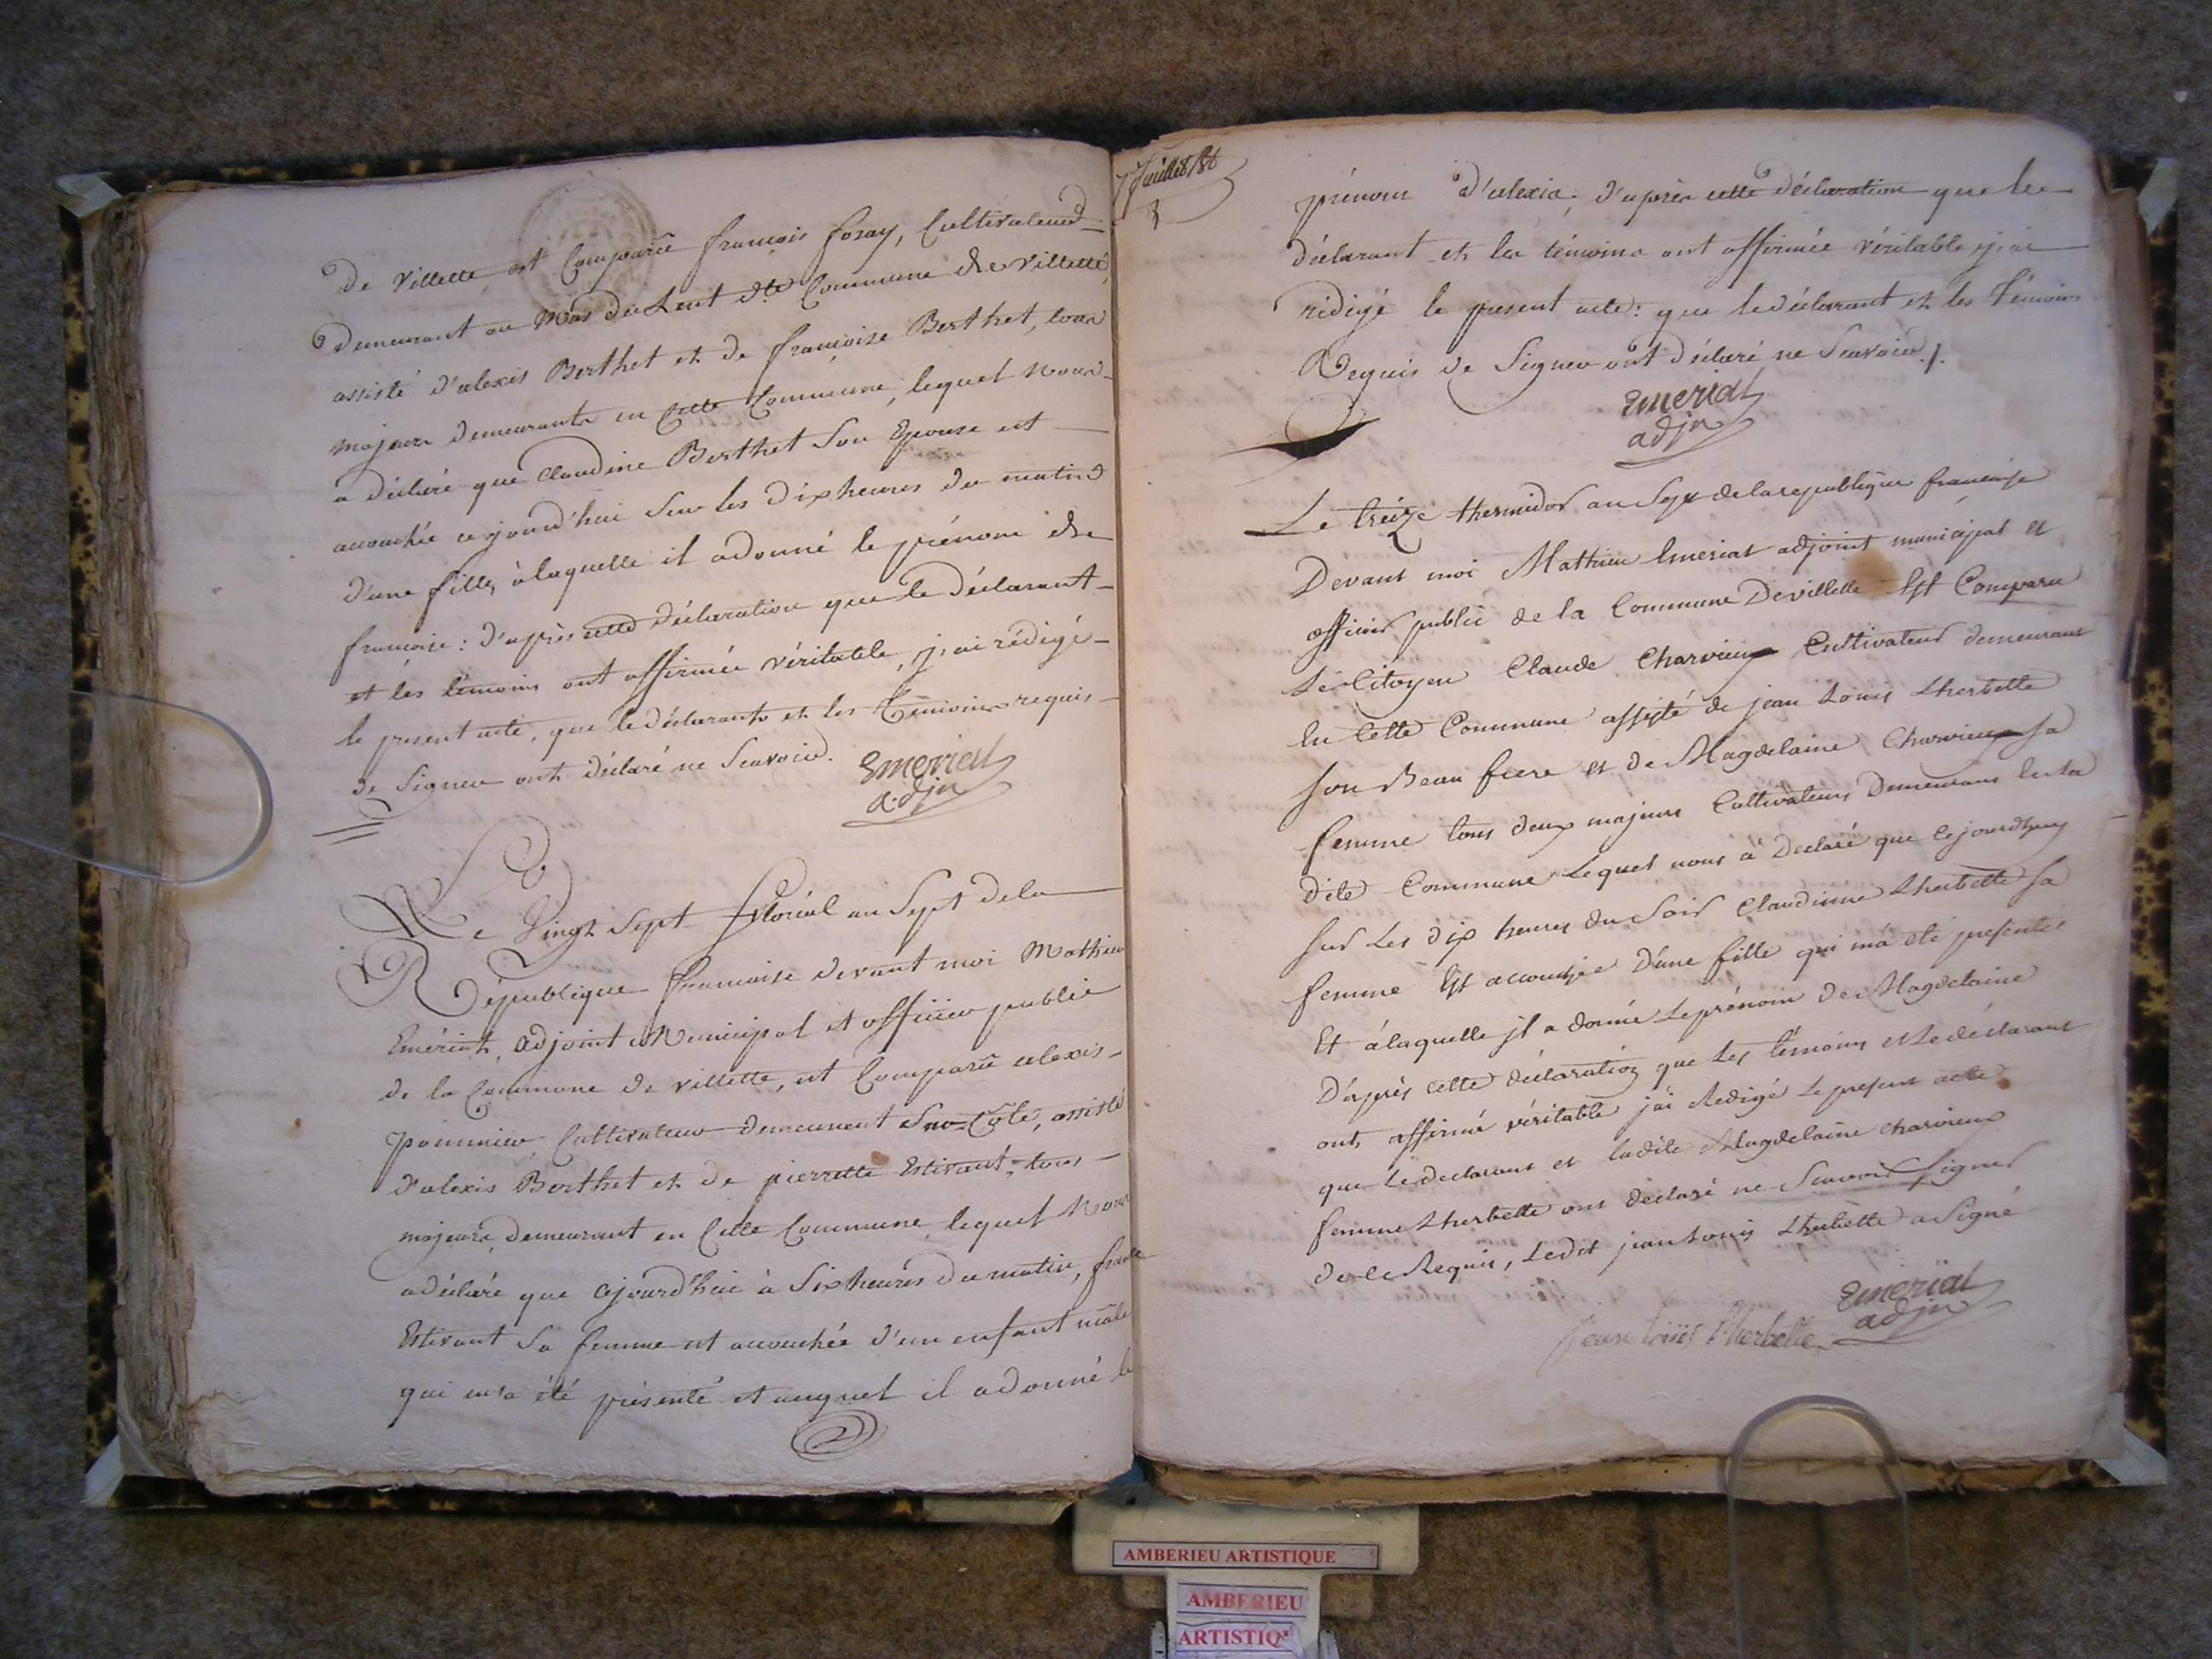 De Villette, est Comparû françois foray, Cultivateur
Demeurant au Mas du Lent dte Commune de Villette
assisté d'alexis Berthet et de françoise Berthet, tous
majeurs Demeurants en Cette Commune, lequel nous
a déclaré que Claudine Berthet Son Epouse est
accouchée cejourd'hui Sur les Dix heures du matin
d'une fille, à laquelle il a donné le prénom de
françoise : d'après cette Déclaration que le Déclarant
et les témoins ont affirmée véritable, j'ai rédigé
le present acte, que le Déclarant et les Témoins requis
de Signer ont déclaré ne Scavoir.
Emeriat
adjn
Le Vingt Sept floréal an Sept de la
République françoise devant moi Mathieu
Emériat, adjoint Municipal et officier public
de la Commune de Villette, est Comparû alexis
pommier, Cultivateur demeurant Sno Côte, assisté
d'alexis Berthet et de pierrette Estivant, tous
majeurs, demeurant en Cette Commune, lequel Nous
a déclaré que cejourd'hui à Six heures du matin,
Estivant Sa femme est accouchée d'un enfant mâle
qui m'a été présenté et auquel il a donné le
7 Juillet
prénom d'alexis ; d'après cette déclaration que le
déclarant et les témoins ont affirmée véritable, j'ai
rédigé le present acte : que le déclarant et les Témoins
Requis de Signer ont déclaré ne Scavoir ./.
Emeriat
adjn
Le treize thermidor an Sept de la republique francaise
Devant moi Mathieu Emeriat adjoint municipal et
officier public de la Commune De villette Est Comparu
Le Citoyen Claude Charvieux Cultivateur demeurant
En Cette Commune assisté de jean Louis Lherbette
son Beau frere et de Magdelaine Charvieux sa
femme tous deux majeurs Cultivateurs Demeurans En la
dite Commune Lequel nous a Declaré que Cejourdhuy
sur Les dix heures du Soir Claudinne Lherbette sa
femme Est accouchée D'une fille qui m'a eté presentée
Et à laquelle jl a donné Le prénom de Magdelaine
D'après cette déclaration que Les témoins et Le déclarant
onts affirmé véritable j'ai Redigé Le present acte
que Le declarant et ladite Magdelaine charvieux
femme Lherbette ont déclaré ne Scavoir signer
de ce Requis, Ledit jean Louis Lherbette a Signé
Emeriat
adjn
jean louis l'herbette
AMBERIEU ARTISTIQUE
AMBERIEU
ARTISTIQ